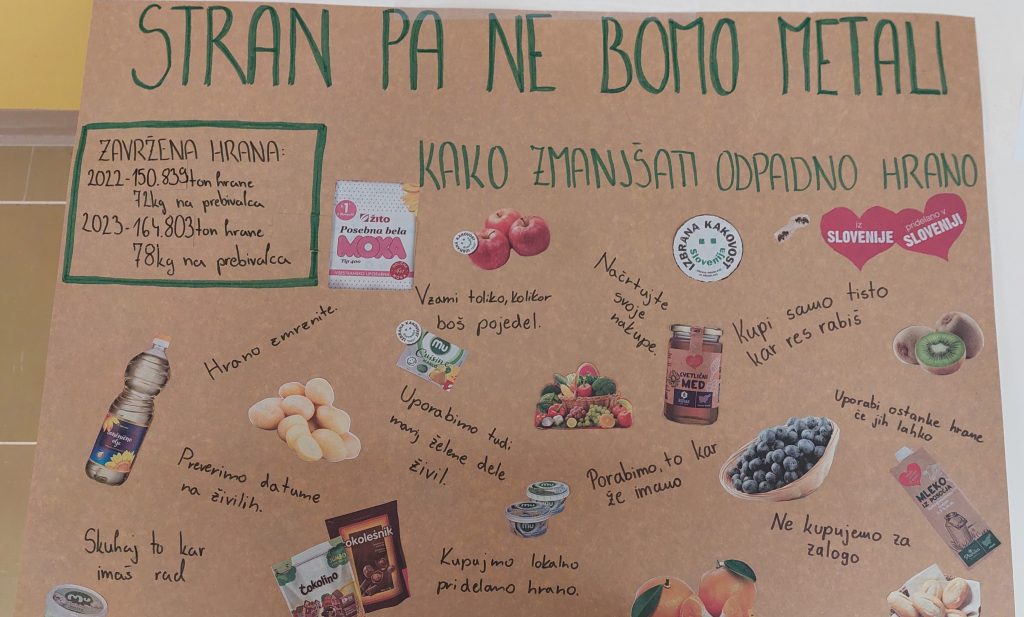 STRAN PA NE BOMO METALI
ZAVRŽENA HRANA:
2022-150.839 ton hrane
72kg na prebivalca
2023-164.803 ton hrane
78kg na prebivalca
KAKO ZMANJŠATI ODPADNO HRANO
№1
žito
Posebna bela
MOKA
Tip 400
IZBRANA KAKOVOST
Slovenija
iz
SLOVENIJE
pridelano v
SLOVENIJI
Hrano zmrznite.
Vzami toliko, kolikor
boš pojedel.
Načrtujte
svoje
nakupe.
Kupi samo tisto
kar res rabiš
mu
CVETLIČNI
MED
Uporabimo tudi
manj želene dele
živil.
Uporabi, ostanke hrane
če jih lahko
Preverimo datume
na živilih.
Porabimo, to kar
že imamo
MLEKO
IZ POMURJA
Skuhaj to kar
imaš rad
Čokolino
okolešnik
mu
Kupujmo lokalno
pridelano hrano.
Ne kupujemo za
zalogo
mu